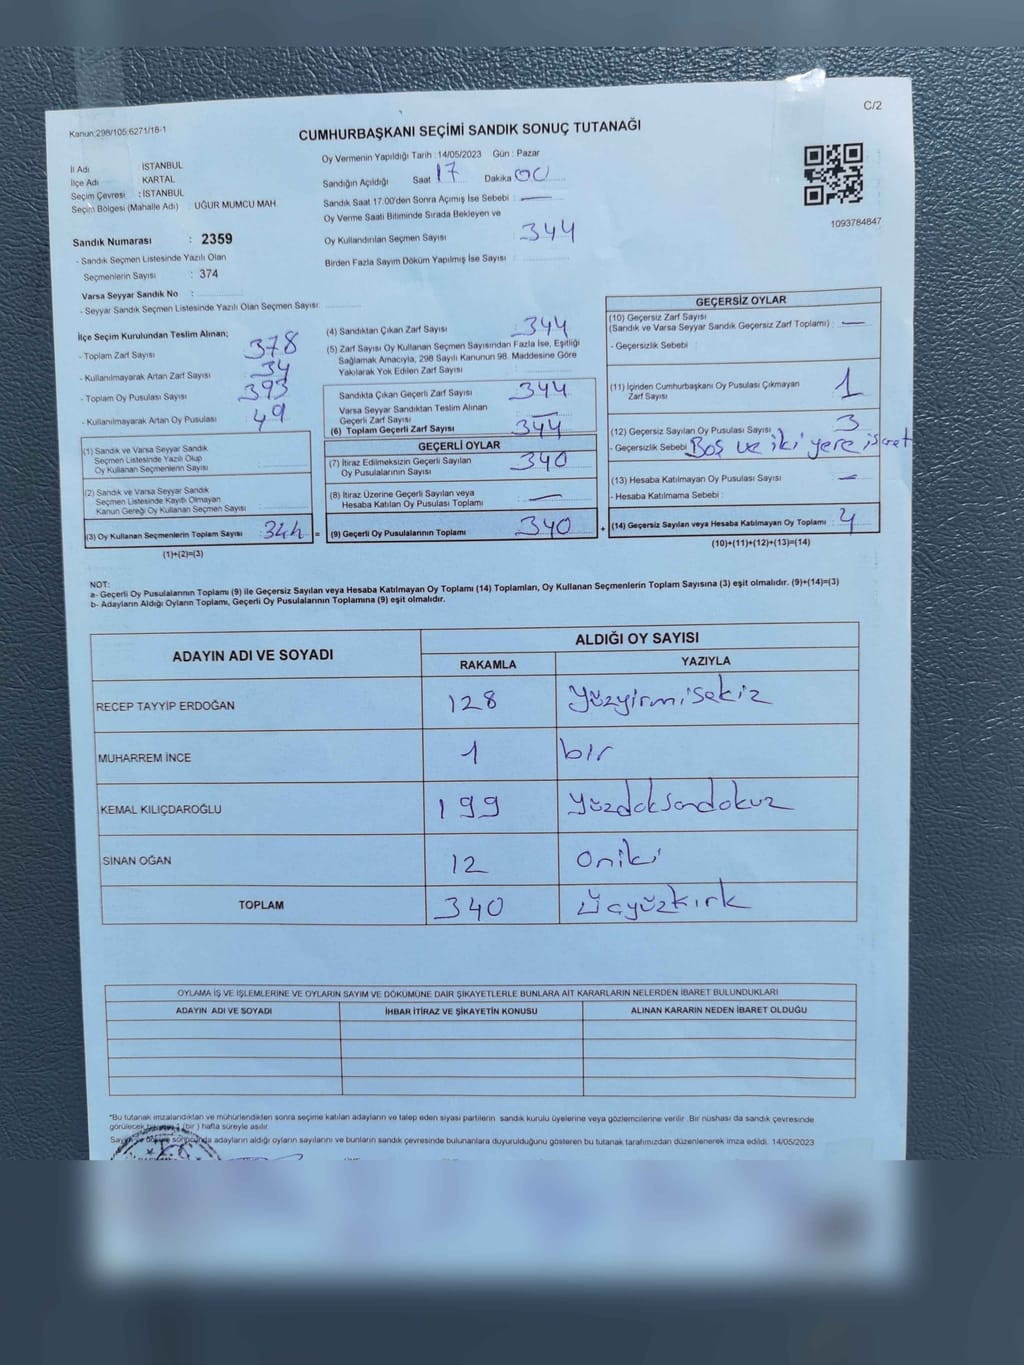 C/2
Kanun:298/105;6271/18-1
CUMHURBAŞKANI SEÇİMİ SANDIK SONUÇ TUTANAĞI
İl Adı İSTANBUL
İlçe Adı KARTAL
Seçim Çevresi : İSTANBUL
Seçim Bölgesi (Mahalle Adı) : UĞUR MUMCU MAH.
Sandık Numarası : 2359
- Sandık Seçmen Listesinde Yazılı Olan
Seçmenlerin Sayısı : 374
Varsa Seyyar Sandık No :
- Seyyar Sandık Seçmen Listesinde Yazılı Olan Seçmen Sayısı:
Oy Vermenin Yapıldığı Tarih : 14/05/2023 Gün : Pazar
Sandığın Açıldığı Saat 17 Dakika 00
Sandık Saat 17.00'den Sonra Açımış İse Sebebi : —
Oy Verme Saati Bitiminde Sırada Bekleyen ve
Oy Kullandırılan Seçmen Sayısı : 344
Birden Fazla Sayım Döküm Yapılmış İse Sayısı :
1093784847
İlçe Seçim Kurulundan Teslim Alınan;
- Toplam Zarf Sayısı 378
- Kullanılmayarak Artan Zarf Sayısı 34
- Toplam Oy Pusulası Sayısı 393
- Kullanılmayarak Artan Oy Pusulası 49
(1) Sandık ve Varsa Seyyar Sandık
Seçmen Listesinde Yazılı Olup
Oy Kullanan Seçmenlerin Sayısı
(2) Sandık ve Varsa Seyyar Sandık
Seçmen Listesinde Kayıtlı Olmayan
Kanun Gereği Oy Kullanan Seçmen Sayısı
(3) Oy Kullanan Seçmenlerin Toplam Sayısı 344 =
(1)+(2)=(3)
(4) Sandıktan Çıkan Zarf Sayısı 344
(5) Zarf Sayısı Oy Kullanan Seçmen Sayısından Fazla İse, Eşitliği
Sağlamak Amacıyla, 298 Sayılı Kanunun 98. Maddesine Göre
Yakılarak Yok Edilen Zarf Sayısı
Sandıkta Çıkan Geçerli Zarf Sayısı 344
Varsa Seyyar Sandıktan Teslim Alınan
Geçerli Zarf Sayısı —
(6) Toplam Geçerli Zarf Sayısı 344
GEÇERLİ OYLAR
(7) İtiraz Edilmeksizin Geçerli Sayılan
Oy Pusulalarının Sayısı 340
(8) İtiraz Üzerine Geçerli Sayılan veya
Hesaba Katılan Oy Pusulası Toplamı —
(9) Geçerli Oy Pusulalarının Toplamı 340 +
GEÇERSİZ OYLAR
(10) Geçersiz Zarf Sayısı
(Sandık ve Varsa Seyyar Sandık Geçersiz Zarf Toplamı) : —
- Geçersizlik Sebebi :
(11) İçinden Cumhurbaşkanı Oy Pusulası Çıkmayan
Zarf Sayısı 1
(12) Geçersiz Sayılan Oy Pusulası Sayısı 3
- Geçersizlik Sebebi : Boş ve iki yere işaret
(13) Hesaba Katılmayan Oy Pusulası Sayısı —
- Hesaba Katılmama Sebebi :
(14) Geçersiz Sayılan veya Hesaba Katılmayan Oy Toplamı : 4
(10)+(11)+(12)+(13)=(14)
NOT:
a- Geçerli Oy Pusulalarının Toplamı (9) ile Geçersiz Sayılan veya Hesaba Katılmayan Oy Toplamı (14) Toplamları, Oy Kullanan Seçmenlerin Toplam Sayısına (3) eşit olmalıdır. (9)+(14)=(3)
b- Adayların Aldığı Oyların Toplamı, Geçerli Oy Pusulalarının Toplamına (9) eşit olmalıdır.
ADAYIN ADI VE SOYADI ALDIĞI OY SAYISI
RAKAMLA YAZIYLA
RECEP TAYYİP ERDOĞAN 128 Yüzyirmisekiz
MUHARREM İNCE 1 bir
KEMAL KILIÇDAROĞLU 199 Yüzdoksandokuz
SİNAN OĞAN 12 Oniki
TOPLAM 340 Üçyüzkırk
OYLAMA İŞ VE İŞLEMLERİNE VE OYLARIN SAYIM VE DÖKÜMÜNE DAİR ŞİKAYETLERLE BUNLARA AİT KARARLARIN NELERDEN İBARET BULUNDUKLARI
ADAYIN ADI VE SOYADI İHBAR İTİRAZ VE ŞİKAYETİN KONUSU ALINAN KARARIN NEDEN İBARET OLDUĞU
*Bu tutanak imzalandıktan ve mühürlendikten sonra seçime katılan adayların ve talep eden siyasi partilerin sandık kurulu üyelerine veya gözlemcilerine verilir. Bir nüshası da sandık çevresinde
görülecek (bir) hafta süreyle asılır.
adayların aldığı oyların sayılarını ve bunların sandık çevresinde bulunanlara duyurulduğunu gösteren bu tutanak tarafımızdan düzenlenerek imza edildi. 14/05/2023